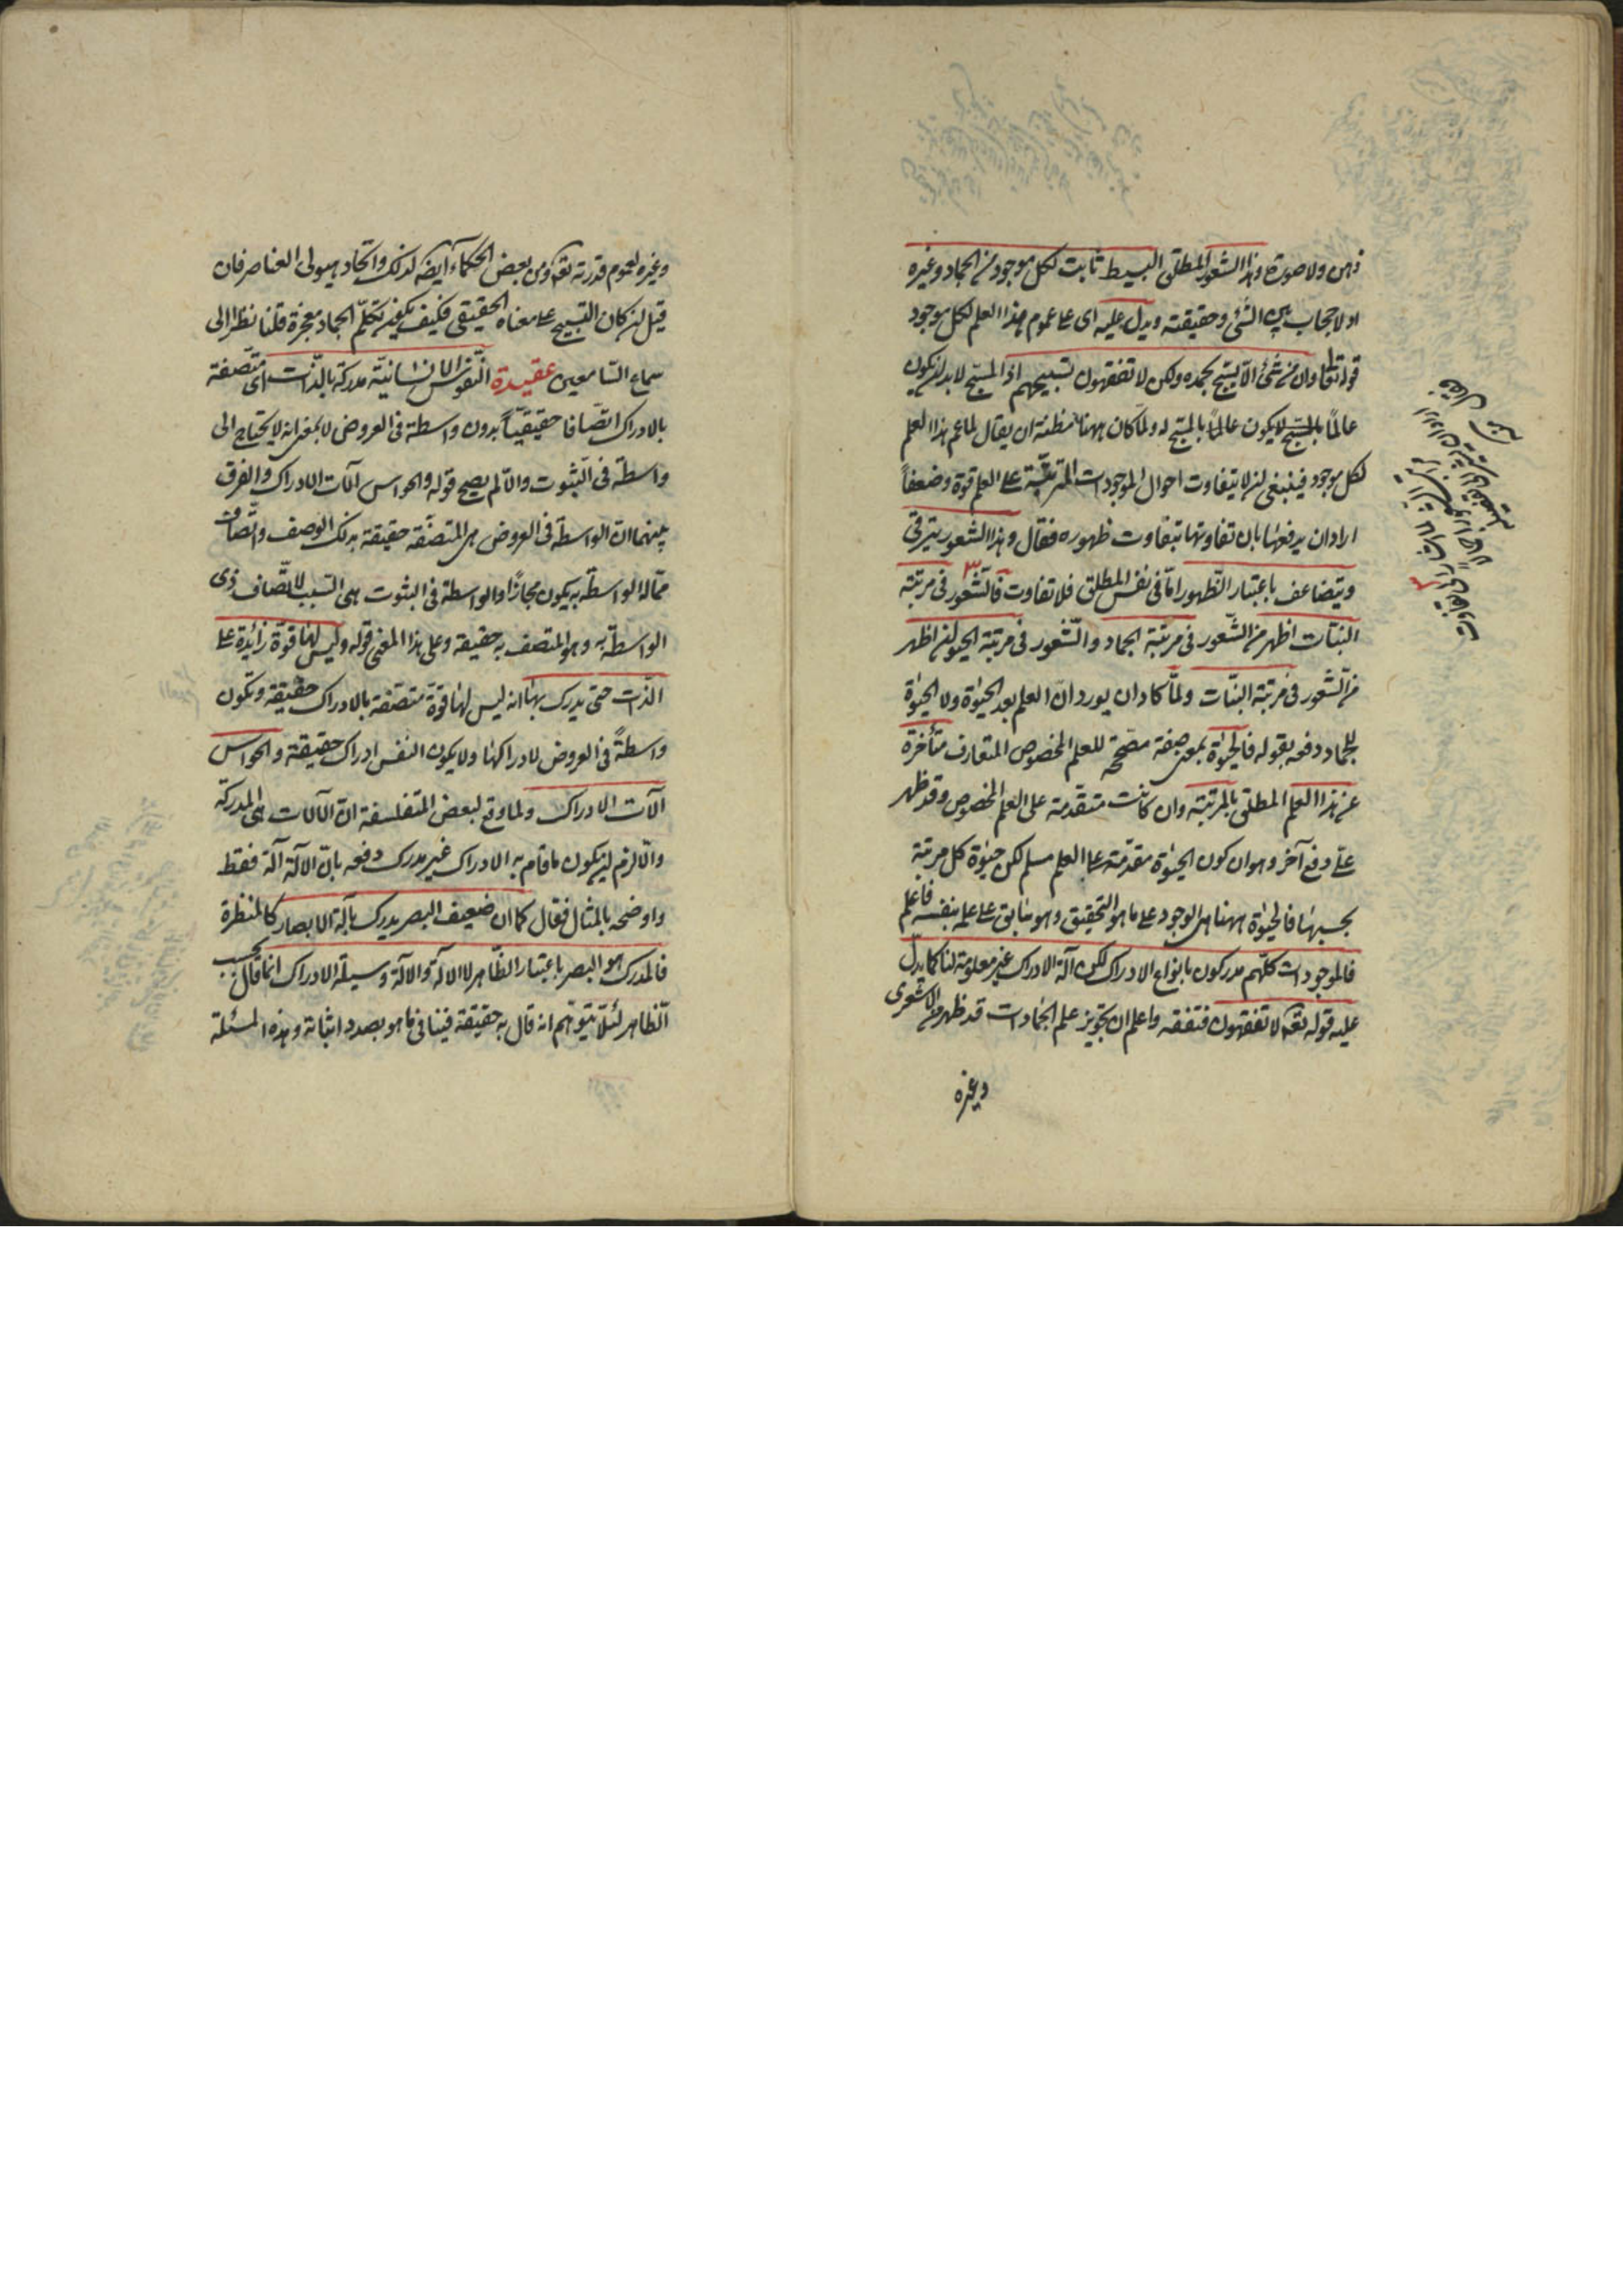 ذهن ولا صورة وهذا الشعور المطلق البسيط ثابت لكل موجود من الجماد وغيره
اذ لا حجاب بين الشئ وحقيقته ويدل عليه اى على عموم هذا العلم لكل موجود
قوله تعالى وان من شئ الا يسبح بحمده ولكن لا تفقهون تسبيحهم اذ المسبح لا بد ان يكون
عالماً بالمسبح لا يكون عالماً بالمسبح له ولما كان ههنا مظنة ان يقال لما عم هذا العلم
لكل موجود فينبغى ان لا يتفاوت احوال الموجودات المترتبة على العلم قوة وضعفاً
اراد ان يدفعها بان تفاوتها بتفاوت ظهوره فقال وهذا الشعور يترقى
ويتضاعف باعتبار الظهور اما فى نفس المطلق فلا تفاوت فالشعور فى مرتبة
النبات اظهر من الشعور فى مرتبة الجماد والشعور فى مرتبة الحيوان اظهر
من الشعور فى مرتبة النبات ولما كاد ان يورد ان العلم بعد الحيوة ولا حيوة
للجماد دفعه بقوله فالحيوة بمعنى صفة مصححة للعلم المخصوص المتعارف متأخرة
عن هذا العلم المطلق بالمرتبة وان كانت متقدمة على العلم المخصوص وقد ظهر
على دفع آخر وهو ان كون الحيوة مقدمة على العلم مسلم لكن حيوة كل مرتبة
بحسبها فالحيوة ههنا هى الوجود على ما هو التحقيق وهو سابق على علمه بنفسه فاعلم
فالموجودات كلهم مدركون بانواع الادراك لكن آلة الادراك غير معلومة لنا كما يدل
عليه قوله تعالى لا تفقهون فتفقه واعلم ان تجويز علم الجمادات قد ظهر من الاشعرى
وغيره
وغيره لعموم قدرته تعالى ومن بعض الحكماء ايضا لذلك واتحاد هيولى العناصر فان
قيل ان كان التسبيح على معناه الحقيقى فكيف يكون تكلم الجماد معجزة قلنا نظرا الى
سماع السامعين عقيدة النفوس الانسانية مدركة بالذات اى متصفة
بالادراك اتصافا حقيقياً بدون واسطة فى العروض لا بمعنى انه لا يحتاج الى
واسطة فى الثبوت والا لم يصح قوله والحواس آلات الادراك والفرق
بينهما ان الواسطة فى العروض هى المتصفة حقيقة بذلك الوصف واتصاف
ما له الواسطة به يكون مجازا والواسطة فى الثبوت هى السبب لاتصاف ذى
الواسطة به وهو المتصف به حقيقة وعلى هذا المعنى قوله وليس لها قوة زائدة على
الذات حتى يدرك بها انه ليس لها قوة متصفة بالادراك حقيقة وتكون
واسطةً فى العروض لادراكها ولا يكون النفس ادراك حقيقة والحواس
آلات الادراك ولما وقع لبعض المتفلسفة ان الآلات هى المدركة
والا لزم ان يكون ما قام به الادراك غير مدرك دفعه بان الآلة آلة فقط
واوضحه بالمثال فقال كما ان ضعيف البصر يدرك بآلة الابصار كالمنظرة
فالمدرك هو البصر باعتبار الظاهر لا الآلة والآلة وسيلة الادراك انما قال بحسب
الظاهر لئلا يتوهم انه قال به حقيقة فينافى ما هو بصدد اثباته وهذه المسئلة